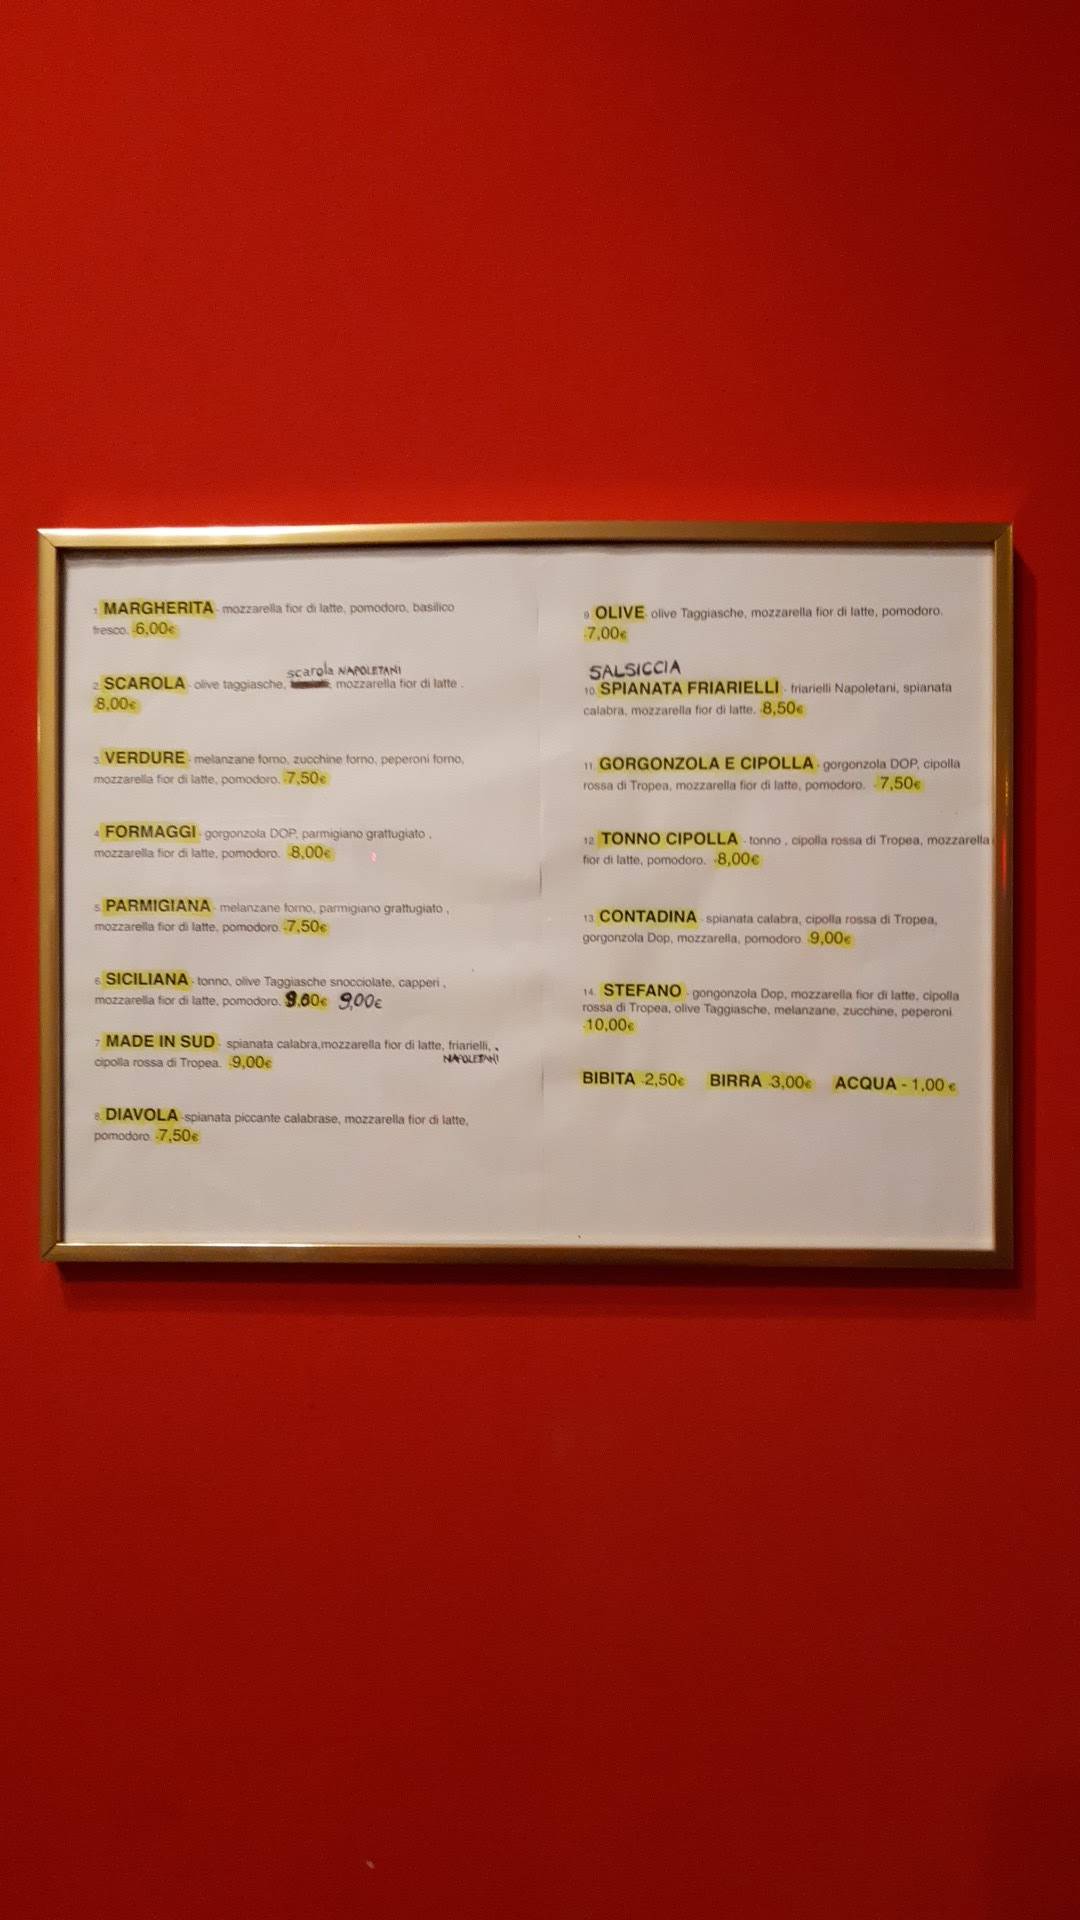 1. MARGHERITA - mozzarella fior di latte, pomodoro, basilico
fresco. -6,00€
scarola NAPOLETANI
2. SCAROLA - olive taggiasche, mozzarella fior di latte .
8,00€
3. VERDURE - melanzane forno, zucchine forno, peperoni forno,
mozzarella fior di latte, pomodoro. -7,50€
4. FORMAGGI - gorgonzola DOP, parmigiano grattugiato ,
mozzarella fior di latte, pomodoro. -8,00€
5. PARMIGIANA - melanzane forno, parmigiano grattugiato ,
mozzarella fior di latte, pomodoro. -7,50€
6. SICILIANA - tonno, olive Taggiasche snocciolate, capperi ,
mozzarella fior di latte, pomodoro. 9,00€
7. MADE IN SUD - spianata calabra,mozzarella fior di latte, friarielli,
NAPOLETANI
cipolla rossa di Tropea. -9,00€
8. DIAVOLA -spianata piccante calabrase, mozzarella fior di latte,
pomodoro. -7,50€
9. OLIVE- olive Taggiasche, mozzarella fior di latte, pomodoro.
-7,00€
SALSICCIA
10. SPIANATA FRIARIELLI - friarielli Napoletani, spianata
calabra, mozzarella fior di latte. -8,50€
11. GORGONZOLA E CIPOLLA - gorgonzola DOP, cipolla
rossa di Tropea, mozzarella fior di latte, pomodoro. -7,50€
12. TONNO CIPOLLA - tonno , cipolla rossa di Tropea, mozzarella
fior di latte, pomodoro. -8,00€
13. CONTADINA - spianata calabra, cipolla rossa di Tropea,
gorgonzola Dop, mozzarella, pomodoro -9,00€
14. STEFANO - gongonzola Dop, mozzarella fior di latte, cipolla
rossa di Tropea, olive Taggiasche, melanzane, zucchine, peperoni
-10,00€
BIBITA -2,50€ BIRRA -3,00€ ACQUA - 1,00 €